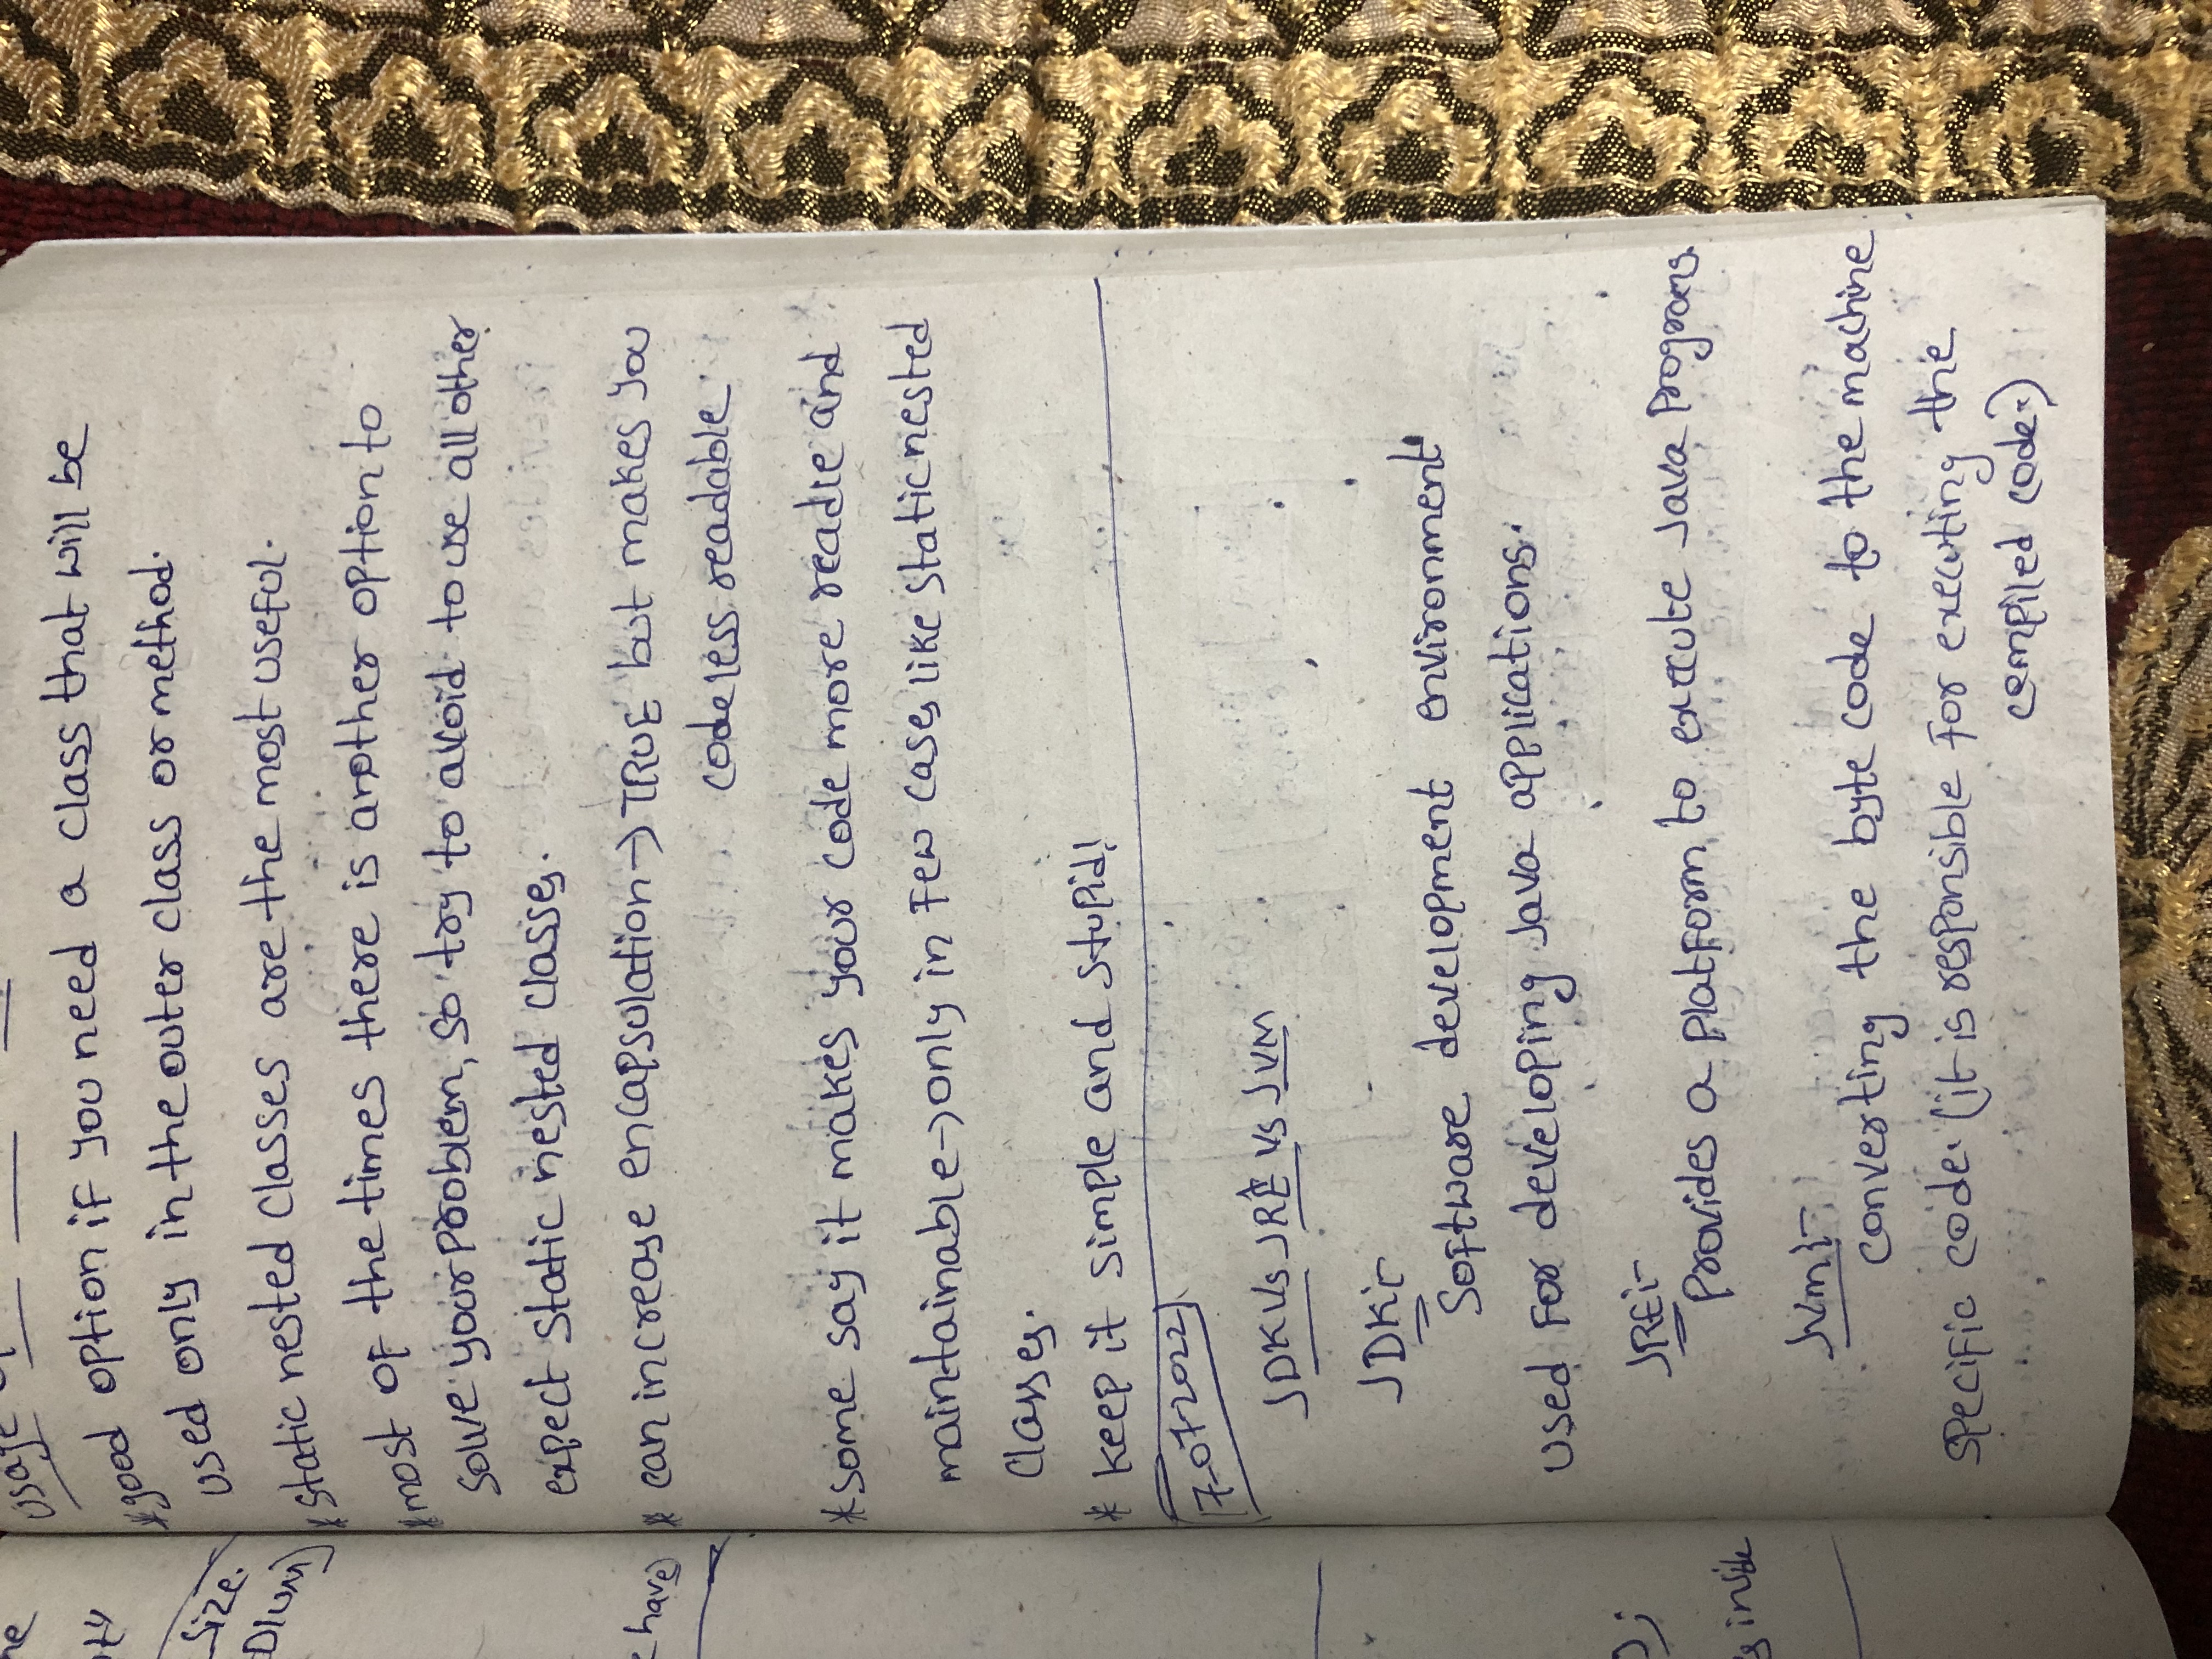 usage
* good option if you need a class that will be
used only in the outer class or method.
* static nested classes are the most useful.
* most of the times there is another option to
solve your problem, so try to avoid to use all other
expect static nested classes.
* can increase encapsulation → TRUE but makes you
code less readable
* some say it makes your code more readle and
maintainable → only in few cases like static nested
classes.
* keep it simple and stupid!
7-07-2022
JDK Vs JRE Vs JVM
JDK:-
Software development environment
used for developing Java applications.
JRE:-
provides a platform to execute Java programs.
JVM:-
converting the byte code to the machine
specific code. (it is responsible for executing the
compiled code.)
size.
have)
inside